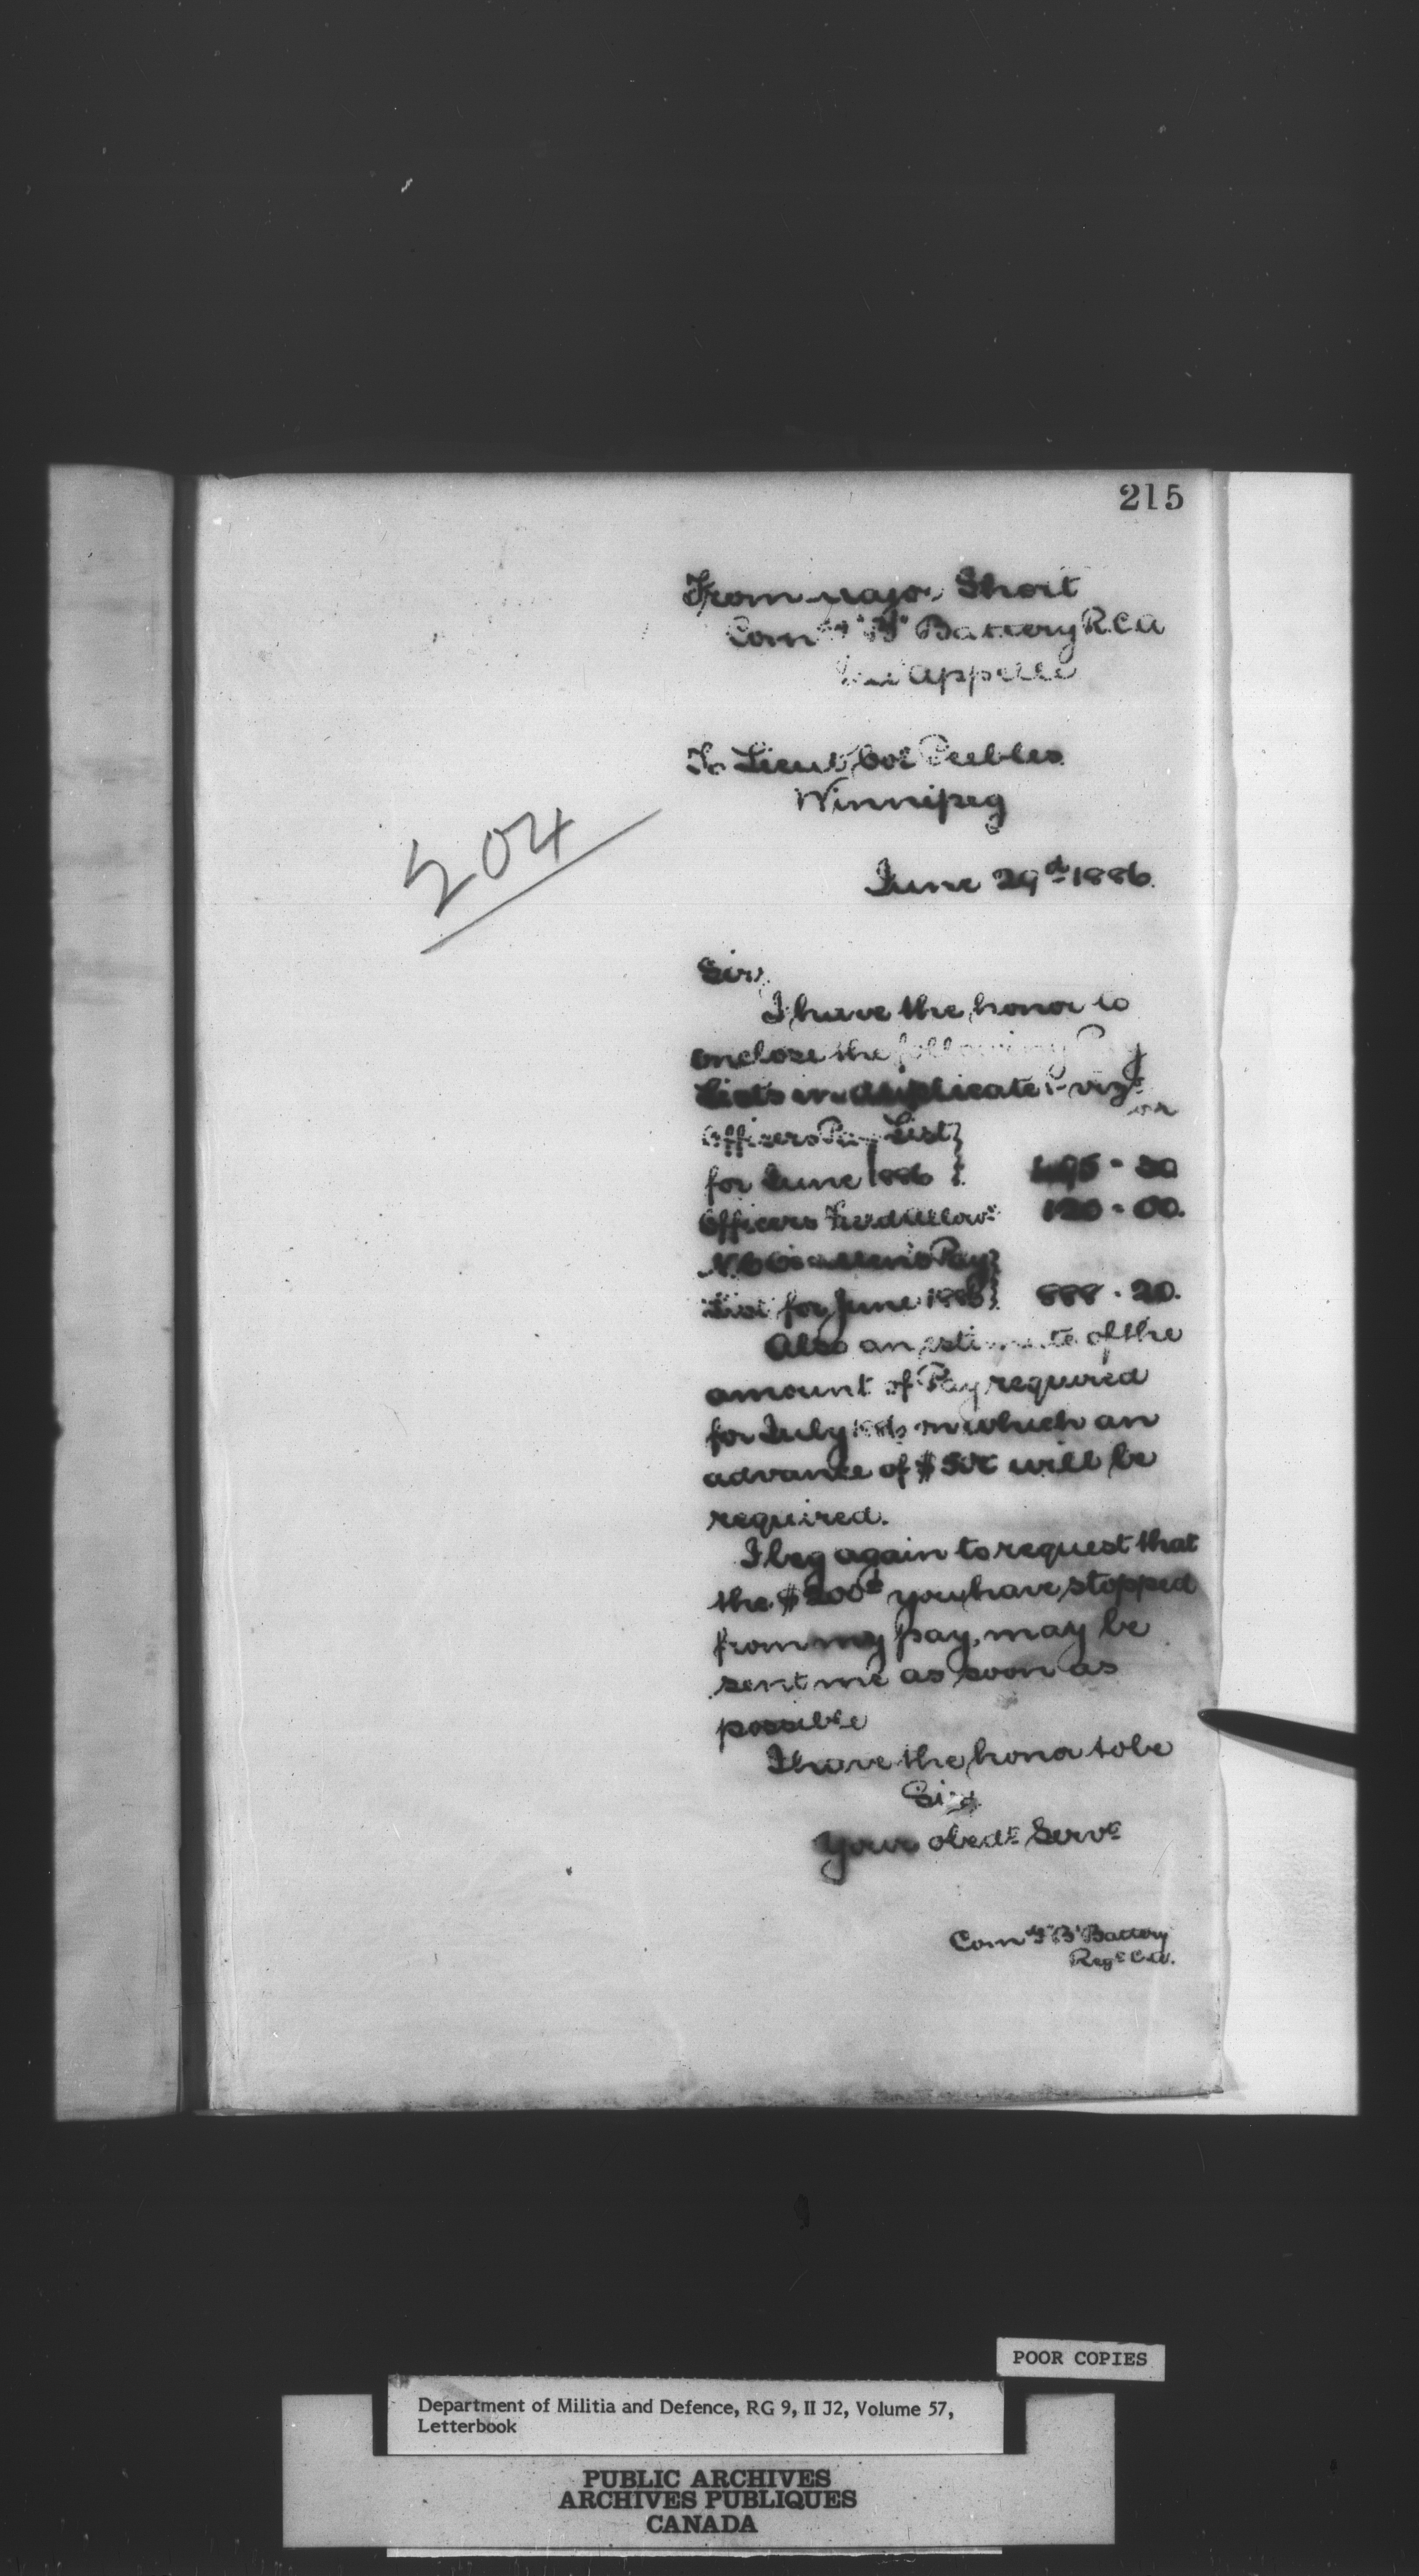 215
From Major Short
Comdt "B" Battery R.C.A
Qu'Appelle
To Lieut Col Peebles
Winnipeg
204
June 29d 1886.
Sir,
I have the honor to
enclose the following Pay
Lists in duplicate :- vizt
Officers Pay List }
for June 1886 } 495 - 50
Officers Field Allowe 120 - 00.
N.C.O's & Men's Pay }
List for June 1886 } 888 . 20.
Also an estimate of the
amount of Pay required
for July 1886 on which an
advance of $ will be
required.
I beg again to request that
the $200 you have stopped
from my pay, may be
sent me as soon as
possible
I have the honor to be
Sir
Your obedt Servt
Comdt "B" Battery
Regt C.A.
POOR COPIES
Department of Militia and Defence, RG 9, II J2, Volume 57,
Letterbook
PUBLIC ARCHIVES
ARCHIVES PUBLIQUES
CANADA